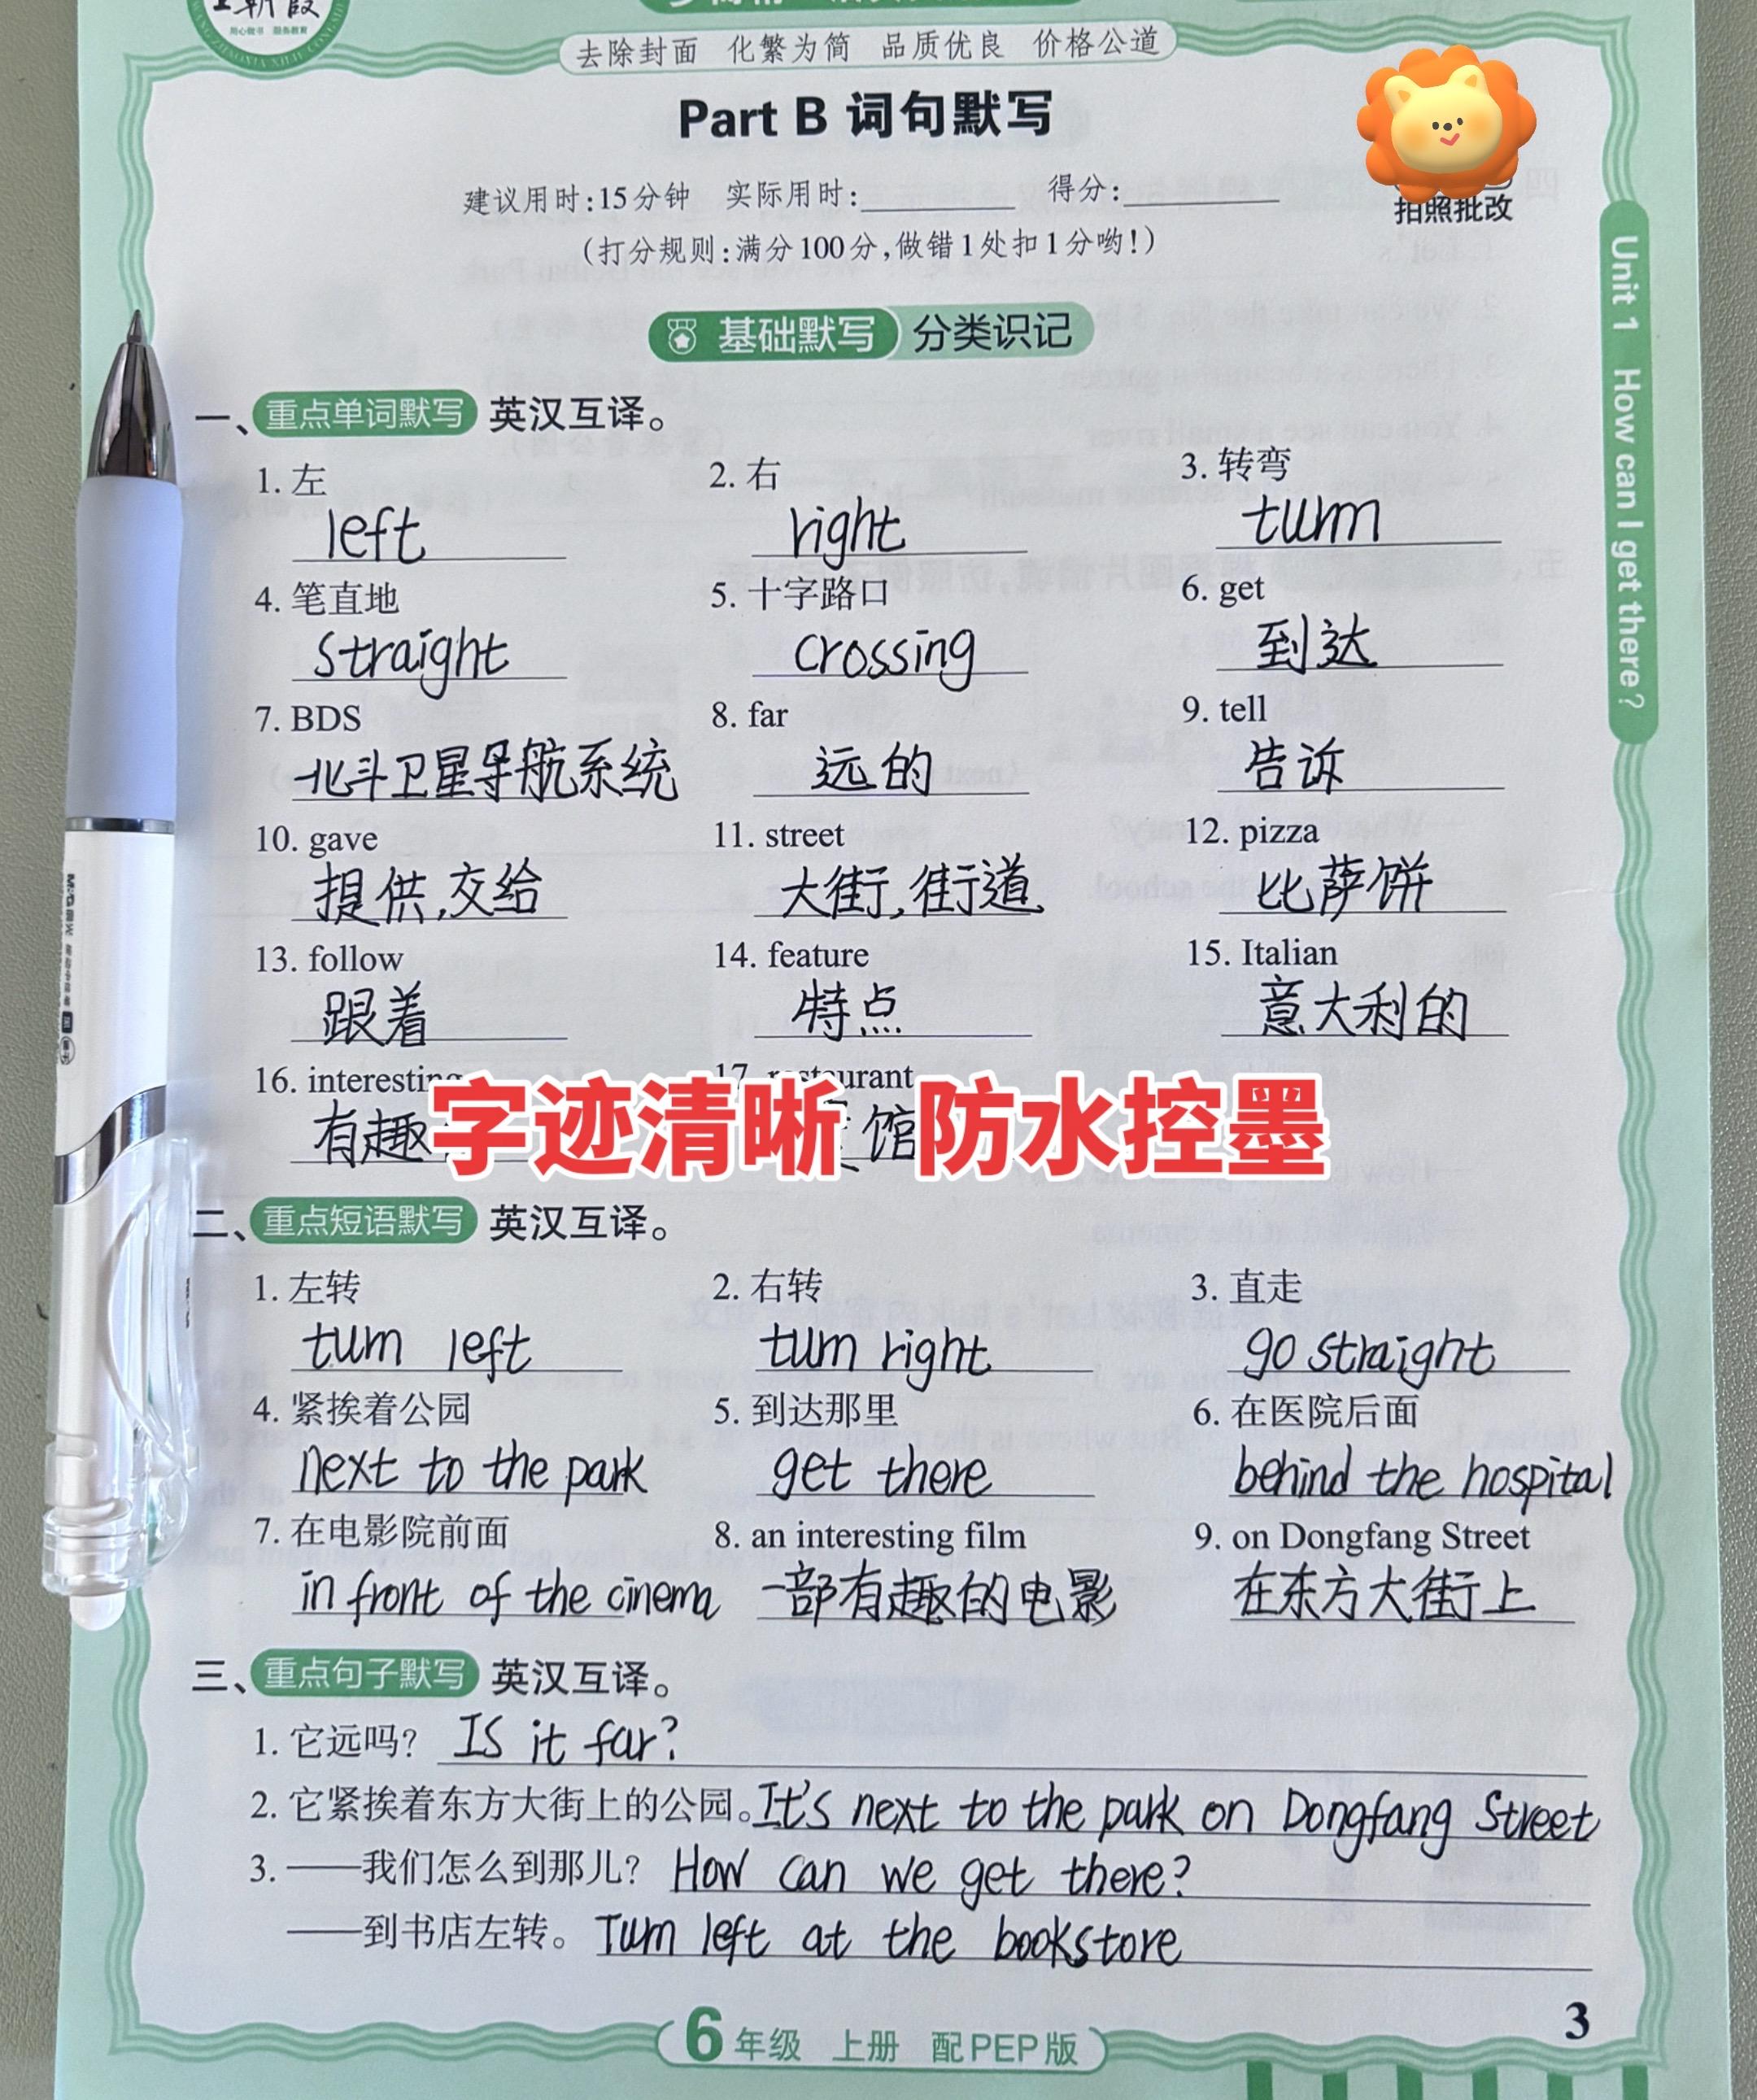 去除封面 化繁为简 品质优良 价格公道
Part B 词句默写
拍照批改
建议用时:15分钟 实际用时: 得分:
(打分规则:满分100分,做错1处扣1分哟!)
基础默写 分类识记
一、重点单词默写 英汉互译。
1. 左 2. 右 3. 转弯
left right turn
4. 笔直地 5. 十字路口 6. get
straight crossing 到达
7. BDS 8. far 9. tell
北斗卫星导航系统 远的 告诉
10. gave 11. street 12. pizza
提供,交给 大街,街道 比萨饼
13. follow 14. feature 15. Italian
跟着 特点 意大利的
16. interesting 17. restaurant
有趣 馆
字迹清晰 防水控墨
二、重点短语默写 英汉互译。
1. 左转 2. 右转 3. 直走
turn left turn right go straight
4. 紧挨着公园 5. 到达那里 6. 在医院后面
next to the park get there behind the hospital
7. 在电影院前面 8. an interesting film 9. on Dongfang Street
in front of the cinema 一部有趣的电影 在东方大街上
三、重点句子默写 英汉互译。
1. 它远吗? Is it far?
2. 它紧挨着东方大街上的公园。It's next to the park on Dongfang Street
3. ——我们怎么到那儿? How can we get there?
——到书店左转。 Turn left at the bookstore
6年级 上册 配PEP版
3
Unit 1 How can I get there?
M&G